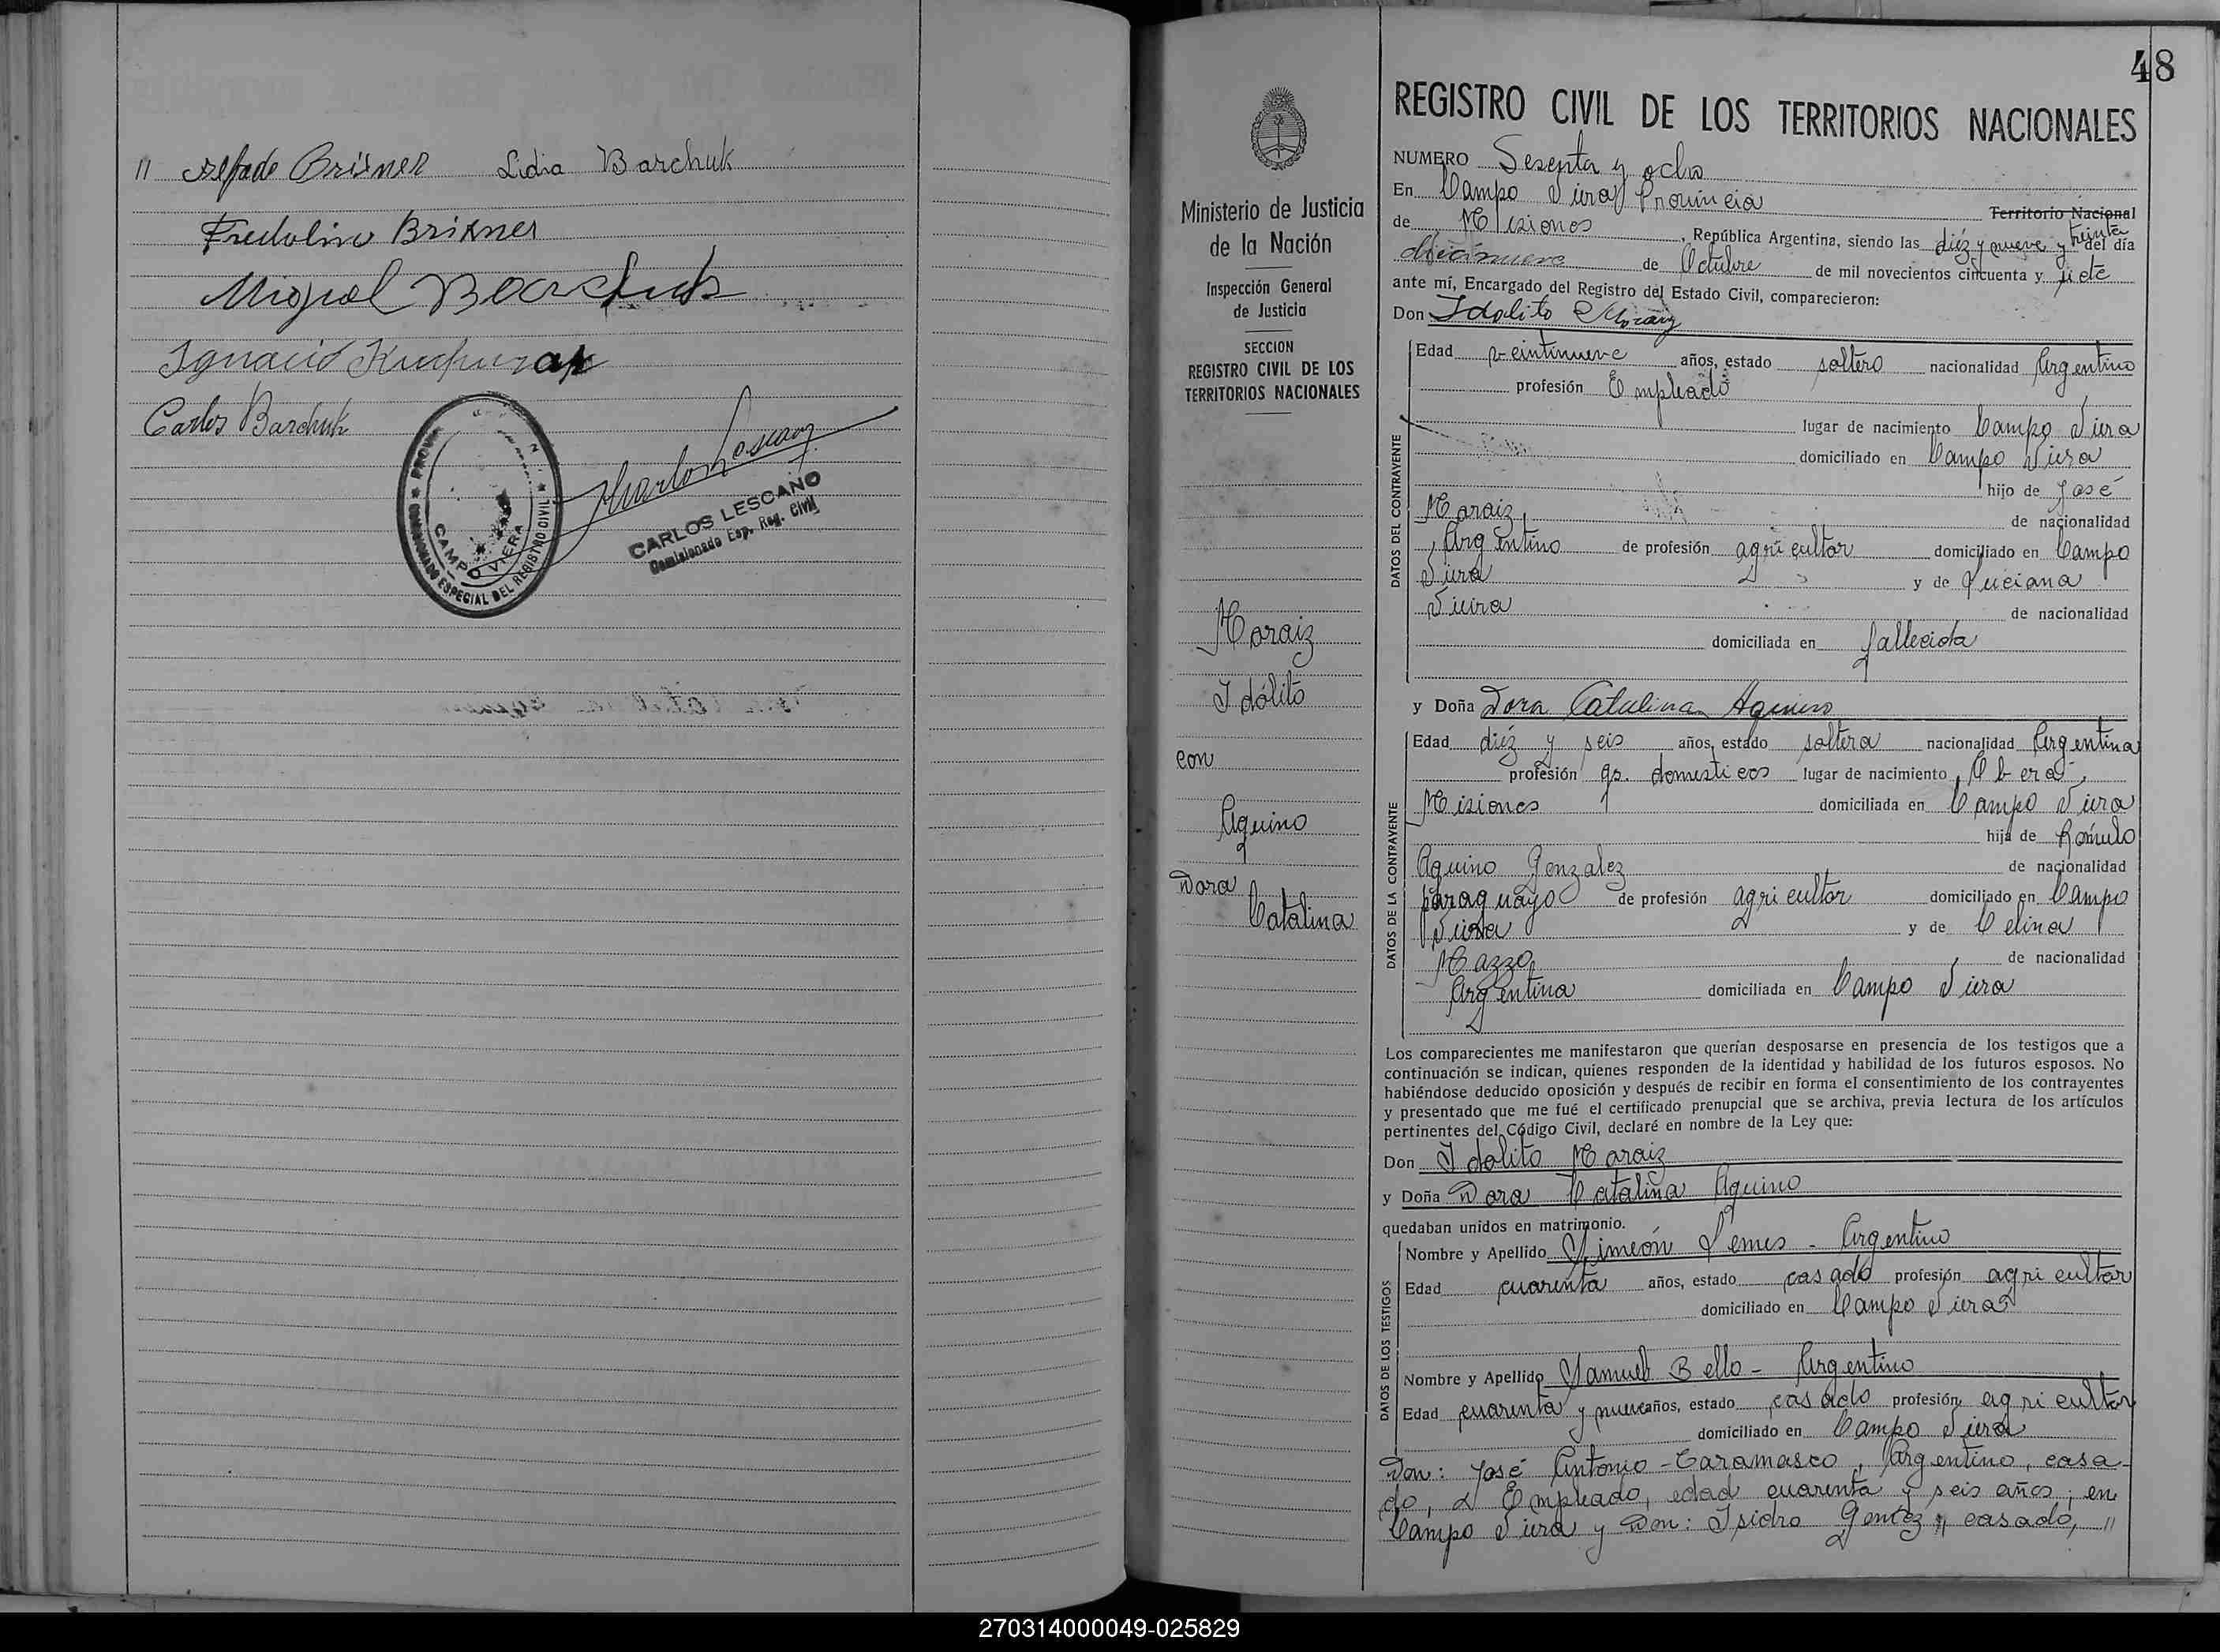 " Brixner Lidia Barchuk
Fredolino Brixner
Miguel Barchuk
Ignacio
Carlos Barchuk
CAMPO VIERA
COMISIONADO ESPECIAL DEL REGISTRO CIVIL
CARLOS LESCANO
Comisionado Esp. Reg. Civil
48
Ministerio de Justicia
de la Nación
Inspección General
de Justicia
SECCION
REGISTRO CIVIL DE LOS
TERRITORIOS NACIONALES
Maraiz
Idólito
con
Aquino
Dora
Catalina
REGISTRO CIVIL DE LOS TERRITORIOS NACIONALES
NUMERO Sesenta y ocho
En Campo Viera, Provincia Territorio Nacional
de Misiones, República Argentina, siendo las diéz y nueve y treinta del día
diecinueve de Octubre de mil novecientos cincuenta y siete
ante mí, Encargado del Registro del Estado Civil, comparecieron:
Don Idolito Maraiz
DATOS DEL CONTRAYENTE
Edad veintinueve años, estado soltero nacionalidad Argentino
profesión Empleado
lugar de nacimiento Campo Viera
domiciliado en Campo Viera
hijo de José
Maraiz, de nacionalidad
Argentino de profesión agricultor domiciliado en Campo
Viera y de Luciana
Vieira de nacionalidad
domiciliada en fallecida
y Doña Dora Catalina Aquino
DATOS DE LA CONTRAYENTE
Edad diéz y seis años, estado soltera nacionalidad Argentina
profesión qs. domesticos lugar de nacimiento Oberá,
Misiones domiciliada en Campo Viera
hija de Rómulo
Aquino Gonzalez de nacionalidad
paraguayo de profesión agricultor domiciliado en Campo
Viera y de Celina
Mazzo de nacionalidad
Argentina domiciliada en Campo Viera
Los comparecientes me manifestaron que querían desposarse en presencia de los testigos que a
continuación se indican, quienes responden de la identidad y habilidad de los futuros esposos. No
habiéndose deducido oposición y después de recibir en forma el consentimiento de los contrayentes
y presentado que me fué el certificado prenupcial que se archiva, previa lectura de los artículos
pertinentes del Código Civil, declaré en nombre de la Ley que:
Don Idolito Maraiz
y Doña Dora Catalina Aquino
quedaban unidos en matrimonio.
DATOS DE LOS TESTIGOS
Nombre y Apellido Simeón Lemes - Argentino
Edad cuarenta años, estado casado profesión agricultor
domiciliado en Campo Viera
Nombre y Apellido Samuel Bello - Argentino
Edad cuarenta y nueve años, estado casado profesión agricultor
domiciliado en Campo Viera
Don: José Antonio Caramasco, Argentino, casa-
do, Empleado, edad cuarenta y seis años, en
Campo Viera y Don: Isidro casado, "
270314000049-025829